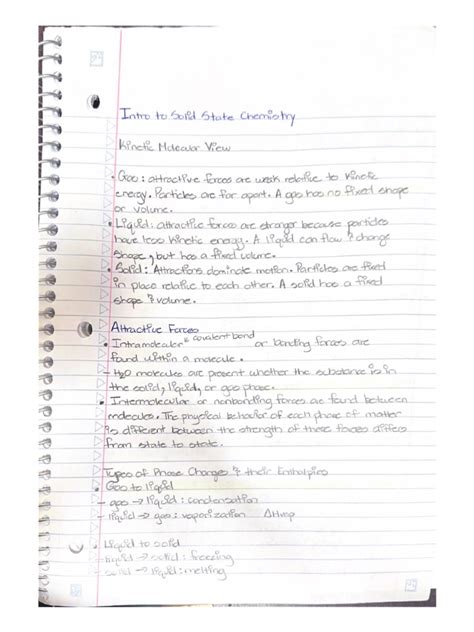 Intro to Solid State Chemistry
Kinetic Molecular View
• Gas: attractive forces are weak relative to kinetic
energy. Particles are far apart. A gas has no fixed shape
or volume.
• Liquid: attractive forces are stronger because particles
have less kinetic energy. A liquid can flow & change
shape, but has a fixed volume.
• Solid: Attractions dominate motion. Particles are fixed
in place relative to each other. A solid has a fixed
shape & volume.
Attractive Forces
covalent bond
• Intramolecular or bonding forces are
found within a molecule.
- H2O molecules are present whether the substance is in
the solid, liquid, or gas phase.
• Intermolecular or nonbonding forces are found between
molecules. The physical behavior of each phase of matter
is different between the strength of these forces differs
from state to state.
Types of Phase Changes & their Enthalpies
• Gas to liquid
- gas → liquid: condensation
- liquid → gas: vaporization ΔHvap
• Liquid to solid
- liquid → solid: freezing
- solid → liquid: melting